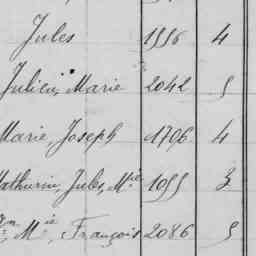 Jules 1556 4
Julien, Marie 2042 5
Marie, Joseph 1796 4
Mathurin, Jules, Mie 1055 3
Mie, François 2086 5